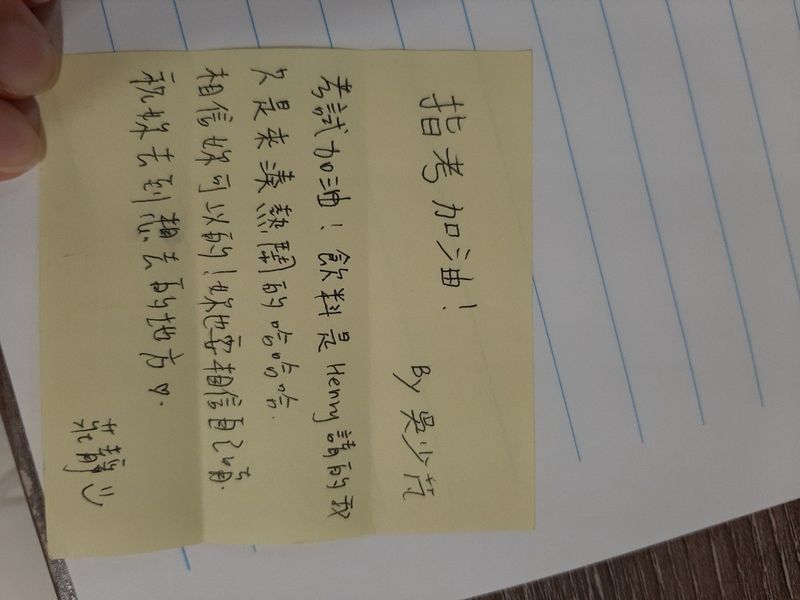 指考加油！
By 吳少芃
考試加油！飲料是Henry請的我
只是來湊熱鬧的哈哈哈.
相信妳可以的！妳也要相信自己唷.
祝妳去到想去的地方♡.
靜:)